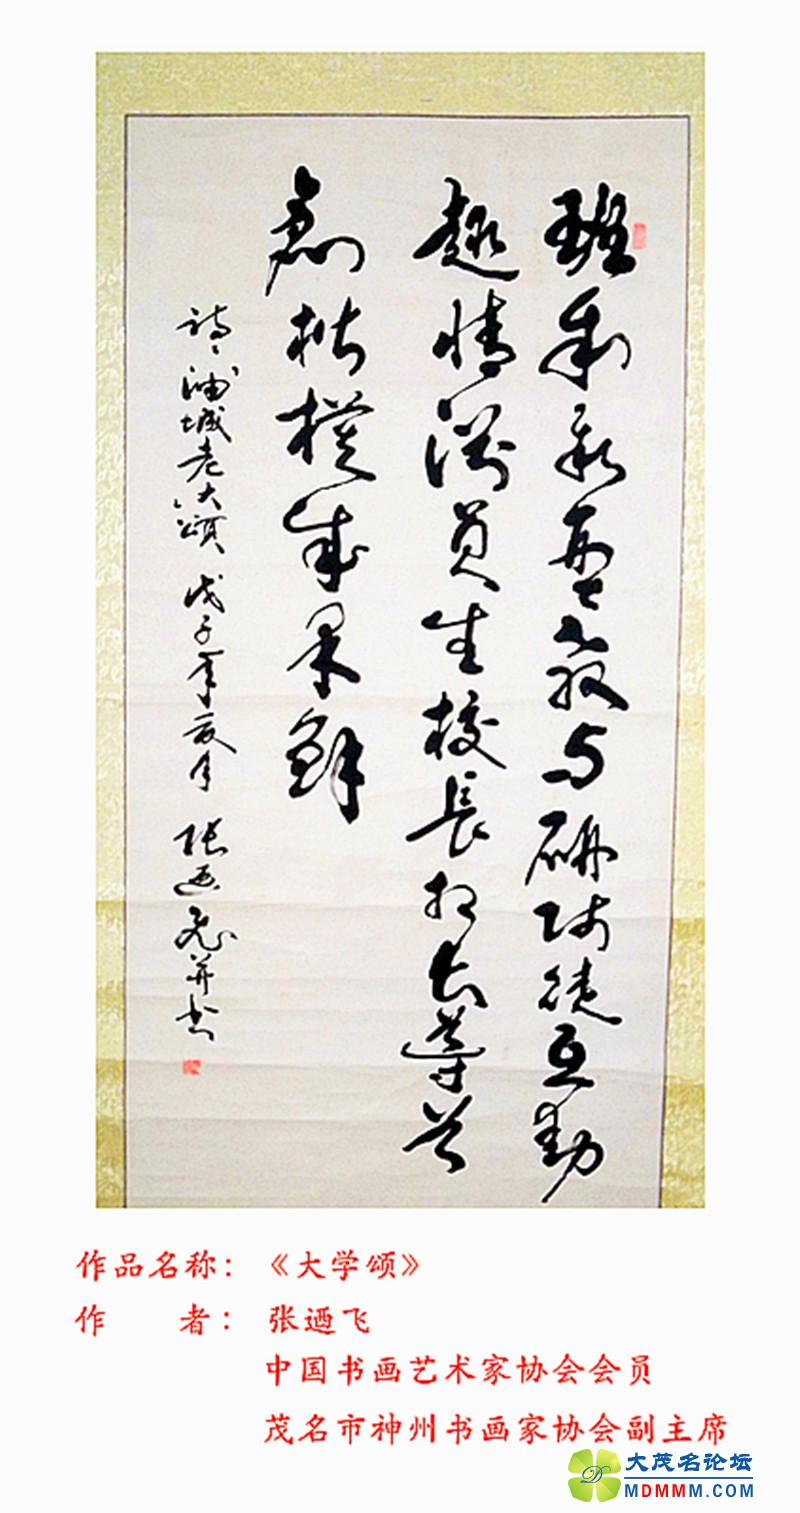 班 新型教与研师徒互動
趣情 员生校長 長導
創楷模成果鲜
诗：油城老大颂 戊子年夏月 张迺飞并书
作品名称：《大学颂》
作 者：张迺飞
中国书画艺术家协会会员
茂名市神州书画家协会副主席
大茂名论坛
MDMMM.COM